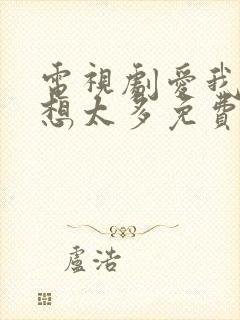 電視劇愛我
想太多免費
盧浩